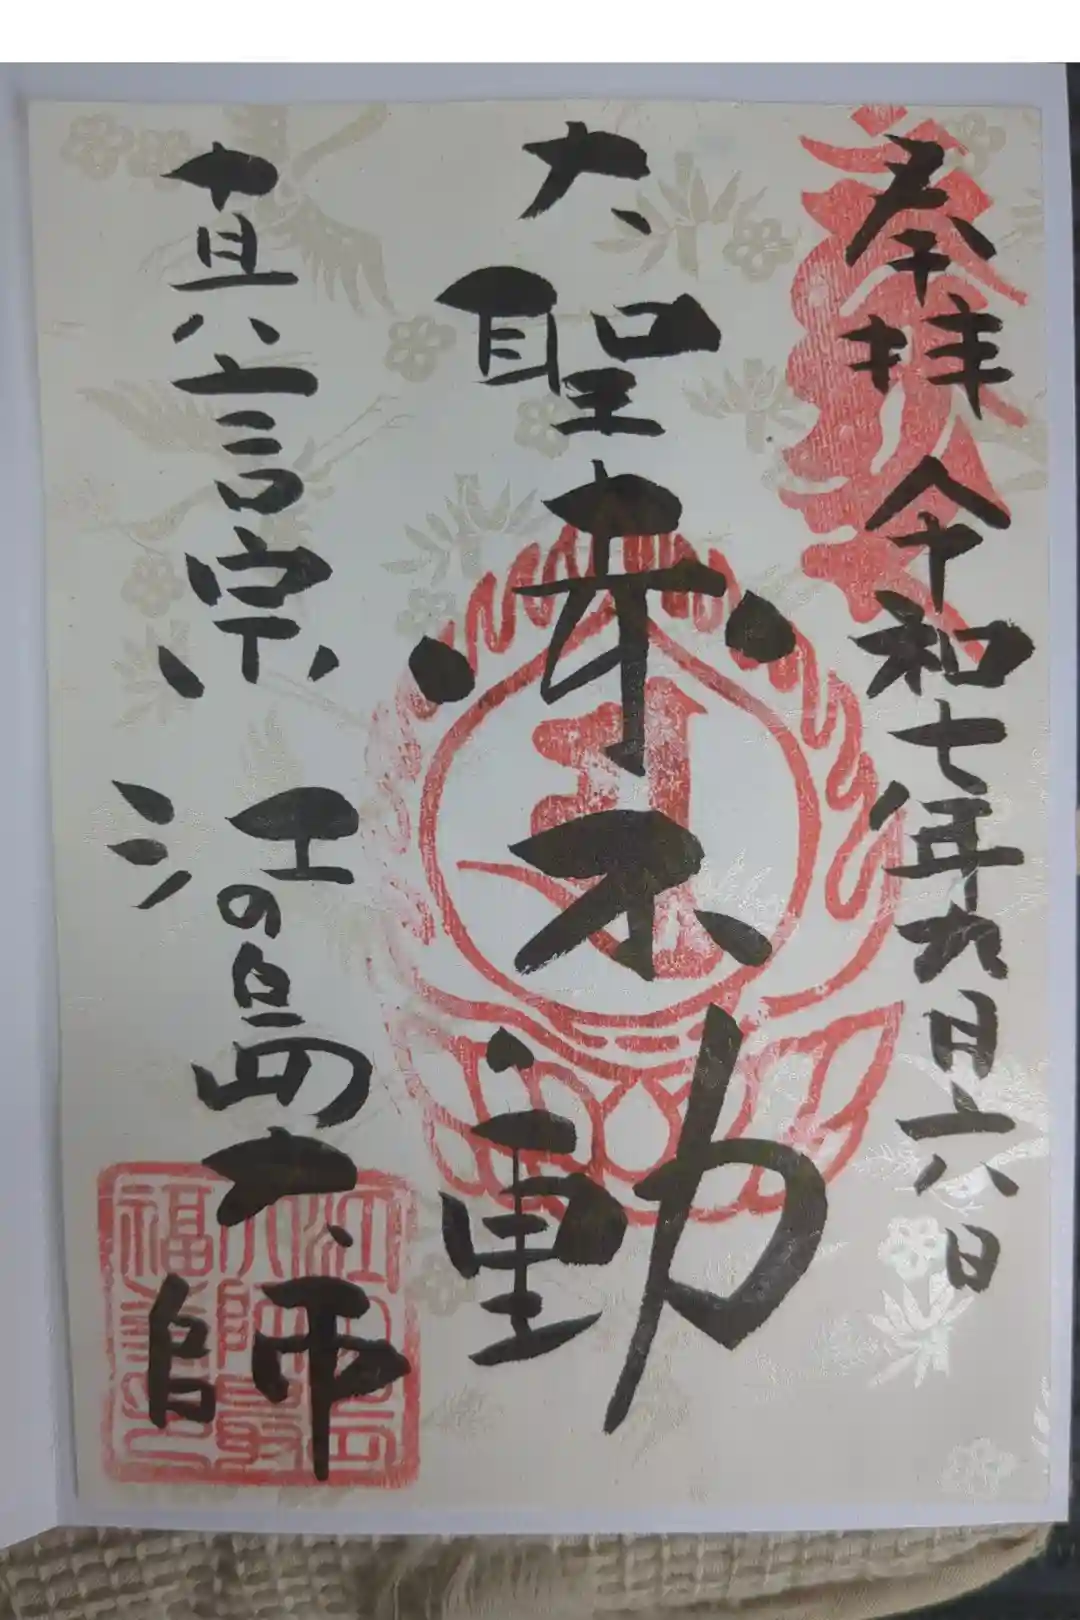 奉拝 令和七年九月六日
大聖赤不動
真言宗 江の島大師